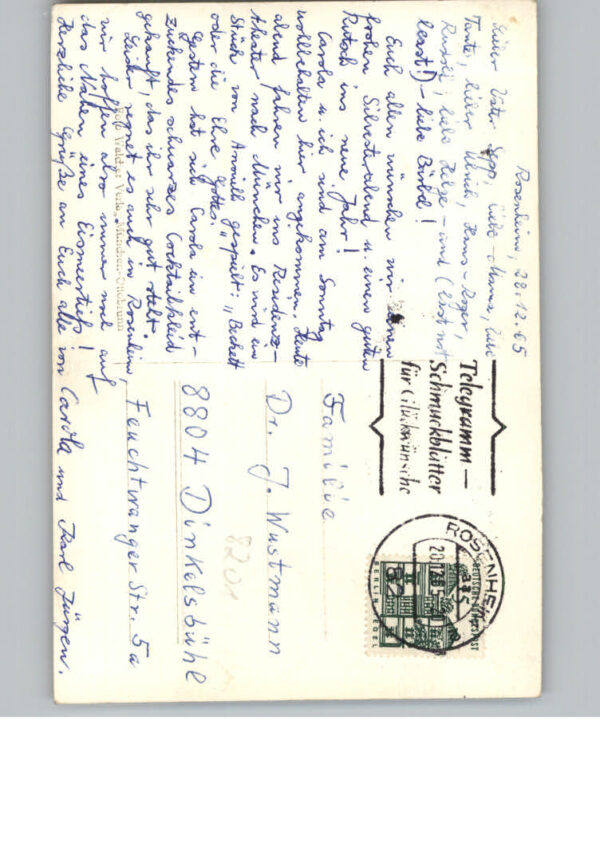 Rosenheim, 28.12.65
Lieber Vater Seppi, liebe Mama, liebe
Tante, lieber Ulrich, Hans-Roger,
Rudolf, liebe Helga - und (Ernst mit
lesst!) - liebe Bärbel!
Euch allen wünschen wir einen
frohen Silvesterabend u. einen guten
Rutsch ins neue Jahr!
Carola u. ich sind am Sonntag
wohlbehalten hier angekommen. Heute
abend fahren wir ins Residenz-
theater nach München. Es wird ein
Stück von Anouilh gespielt: "Becket
oder die Ehre Gottes."
Gestern hat sich Carola ein ent-
zückendes schwarzes Cocktailkleid
gekauft, das ihr sehr gut steht.
Leider regnet es auch in Rosenheim,
wir hoffen also immer noch auf
das Nahen eines Eismeertiefs!
Herzliche Grüße an Euch alle von Carola und Karl Jürgen.
Foto Walcher Verlag, München-Ottobrunn
Telegramm-
Schmuckblätter
für Glückwünsche
ROSENHEIM
DEUTSCHE BUNDESPOST
BERLIN-TEGEL
Familie
Dr. J. Wustmann
8201
8804 Dinkelsbühl
Feuchtwanger Str. 5a